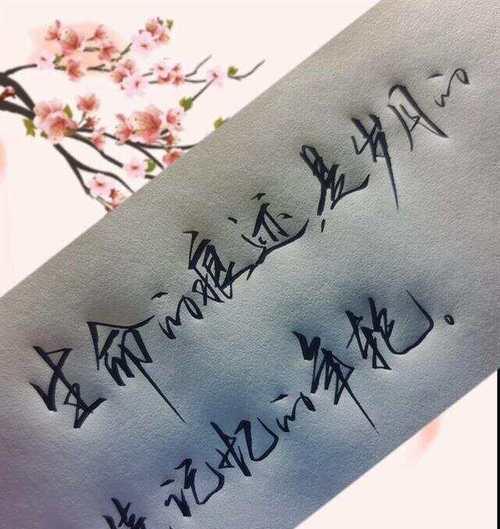 生命的痕迹是岁月的
记忆的年轮。